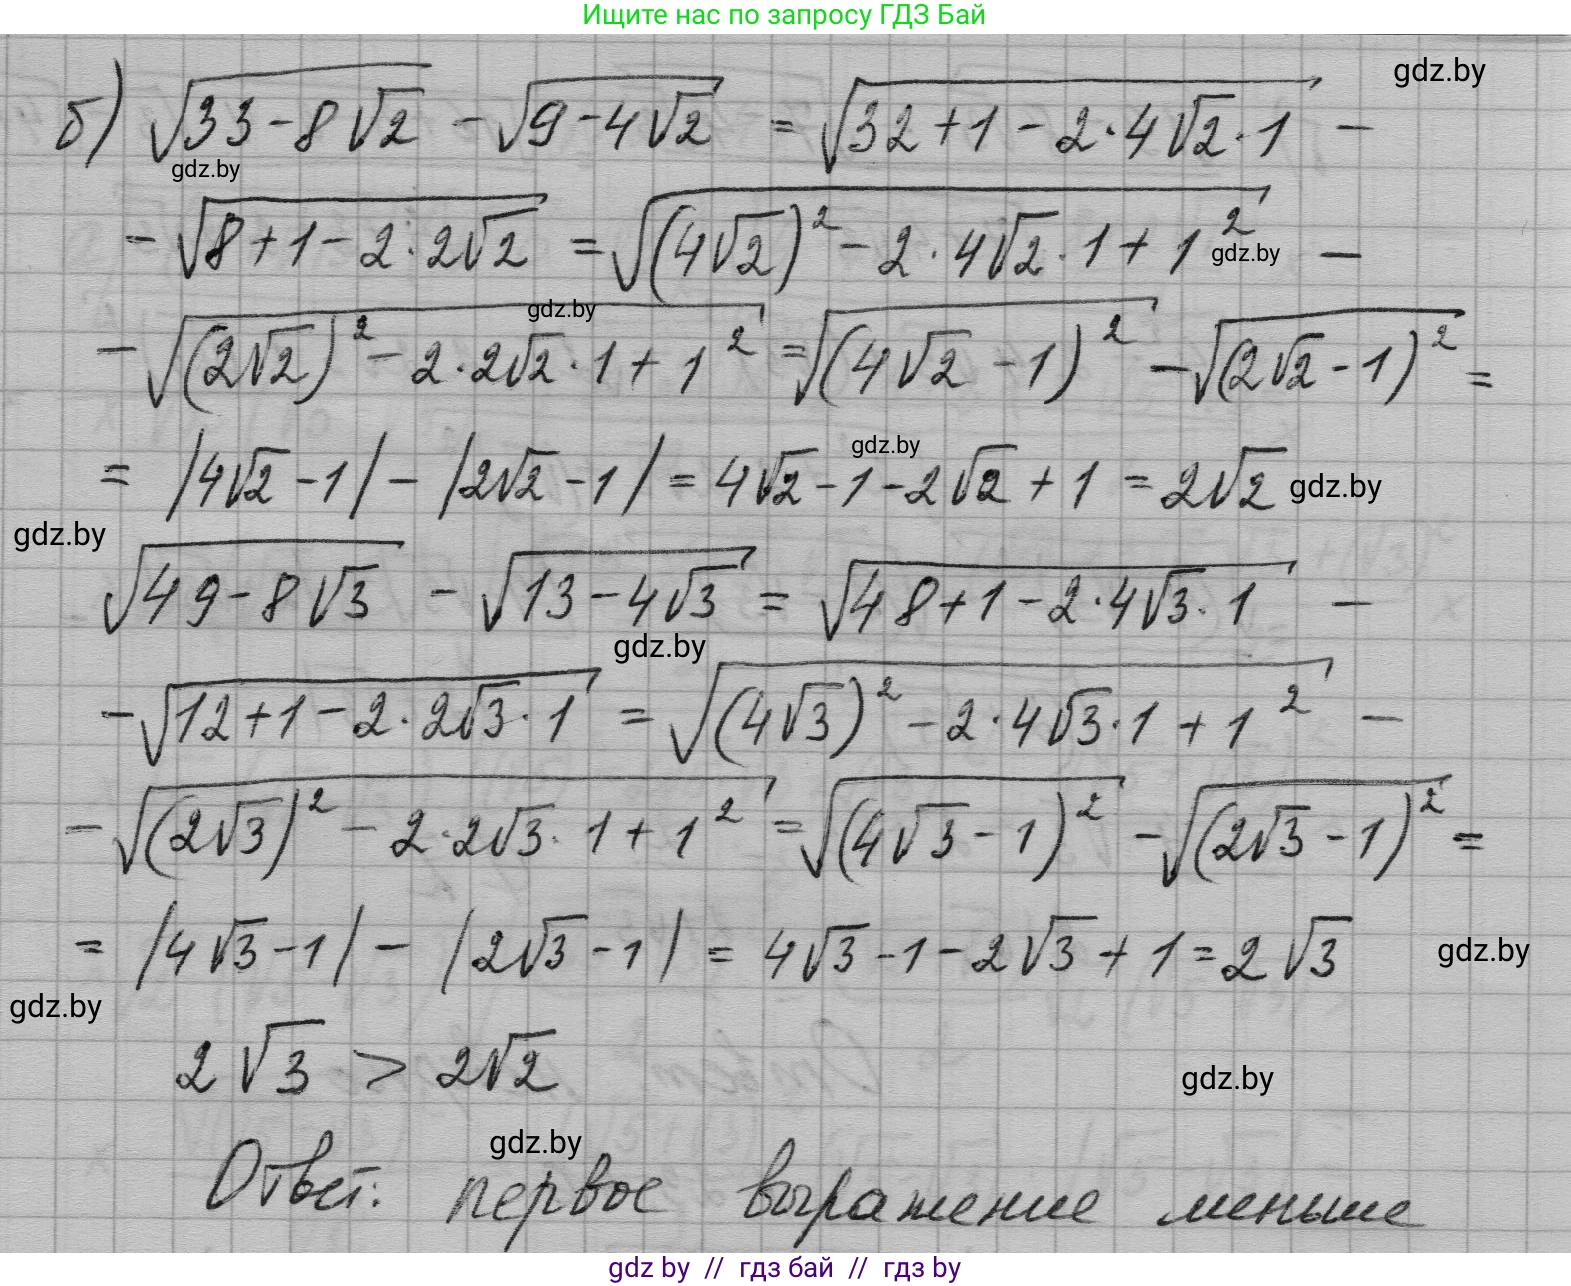 Ищите нас по запросу ГДЗ Бай
gdz.by
б) √(33-8√2) - √(9-4√2) = √(32+1-2·4√2·1) -
gdz.by
- √(8+1-2·2√2) = √((4√2)²-2·4√2·1+1²) -
gdz.by
gdz.by
- √((2√2)²-2·2√2·1+1²) = √((4√2-1)²) - √((2√2-1)²) =
gdz.by
= |4√2-1| - |2√2-1| = 4√2-1-2√2+1 = 2√2
gdz.by
gdz.by
√(49-8√3) - √(13-4√3) = √(48+1-2·4√3·1) -
gdz.by
- √(12+1-2·2√3·1) = √((4√3)²-2·4√3·1+1²) -
- √((2√3)²-2·2√3·1+1²) = √((4√3-1)²) - √((2√3-1)²) =
= |4√3-1| - |2√3-1| = 4√3-1-2√3+1 = 2√3
gdz.by
gdz.by
2√3 > 2√2
gdz.by
gdz.by
Ответ: первое выражение меньше
gdz by // гдз бай // гдз by